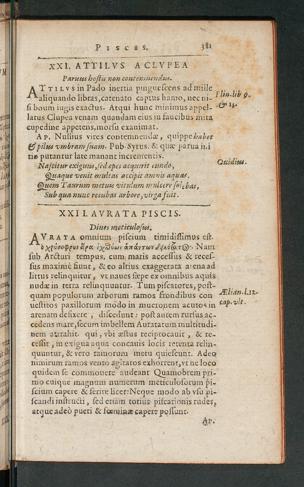 Pisces. 381
XXI. ATTILVS A CLVPEA
Paruus hostis non contemnendus.
ATTILVS in Pado inertia pinguescens ad mille
aliquando libras, catenato captus hamo, nec ni-
si boum iugis exactus. Atqui hunc minimus appel-
latus Clupea venam quandam eius in faucibus mira
cupedine appetens, morsu exanimat.
Plin. lib 9.
AP. Nullius vires contemnendæ, quippe habet
& pilus vmbram suam. Pub Syrus. & quæ parua ini-
tio putantur late manant incrementis.
Nascitur exiguus, sed opes acquirit eundo,
Quidius.
Quaque venit multas accipit amnis aquas.
Quem Taurum metuis vitulum mulcere solebas,
Sub qua nunc recubas arbore, virga fuit.
XXII. AVRATA PISCIS.
Diues meticulosus.
AVRATA omnium piscium timidissimus est.
Nam
sub Arcturi tempus, cum maris accessus & reces-
sus maxime fiunt, & eo altius exaggerata arena ad
littus relinquitur, vt naues sæpe ex omnibus aquis
nudæ in terra relinquuntur. Tum piscatores, post-
quam populorum arborum ramos frondibus con
uestitos paxillorum modo in mucronem acutos in
arenam defixere, discedunt: post autem rursus ac-
cedens mare, secum imbellem Auratarum multitudi-
nem attrahit. qui, vbi æstus reciprocauit, & re-
cessit, in exigua aqua concauis locis retenta relin-
quuntur, & vero ramorum metu quiescunt. Adeo
Ælian. l. 12.
cap. vlt.
nimirum ramos vento agitatos exhorrent, vt ne loco
quidem se commouere audeant Quamobrem pri-
mo cuique magnum numerum meticulosorum pi-
scium capere & ferire licet: Neque modo ab vsu pi-
scandi instructi, sed etiam totius piscationis rudes,
atque adeo pueri & fœminæ capere possunt.
AP.